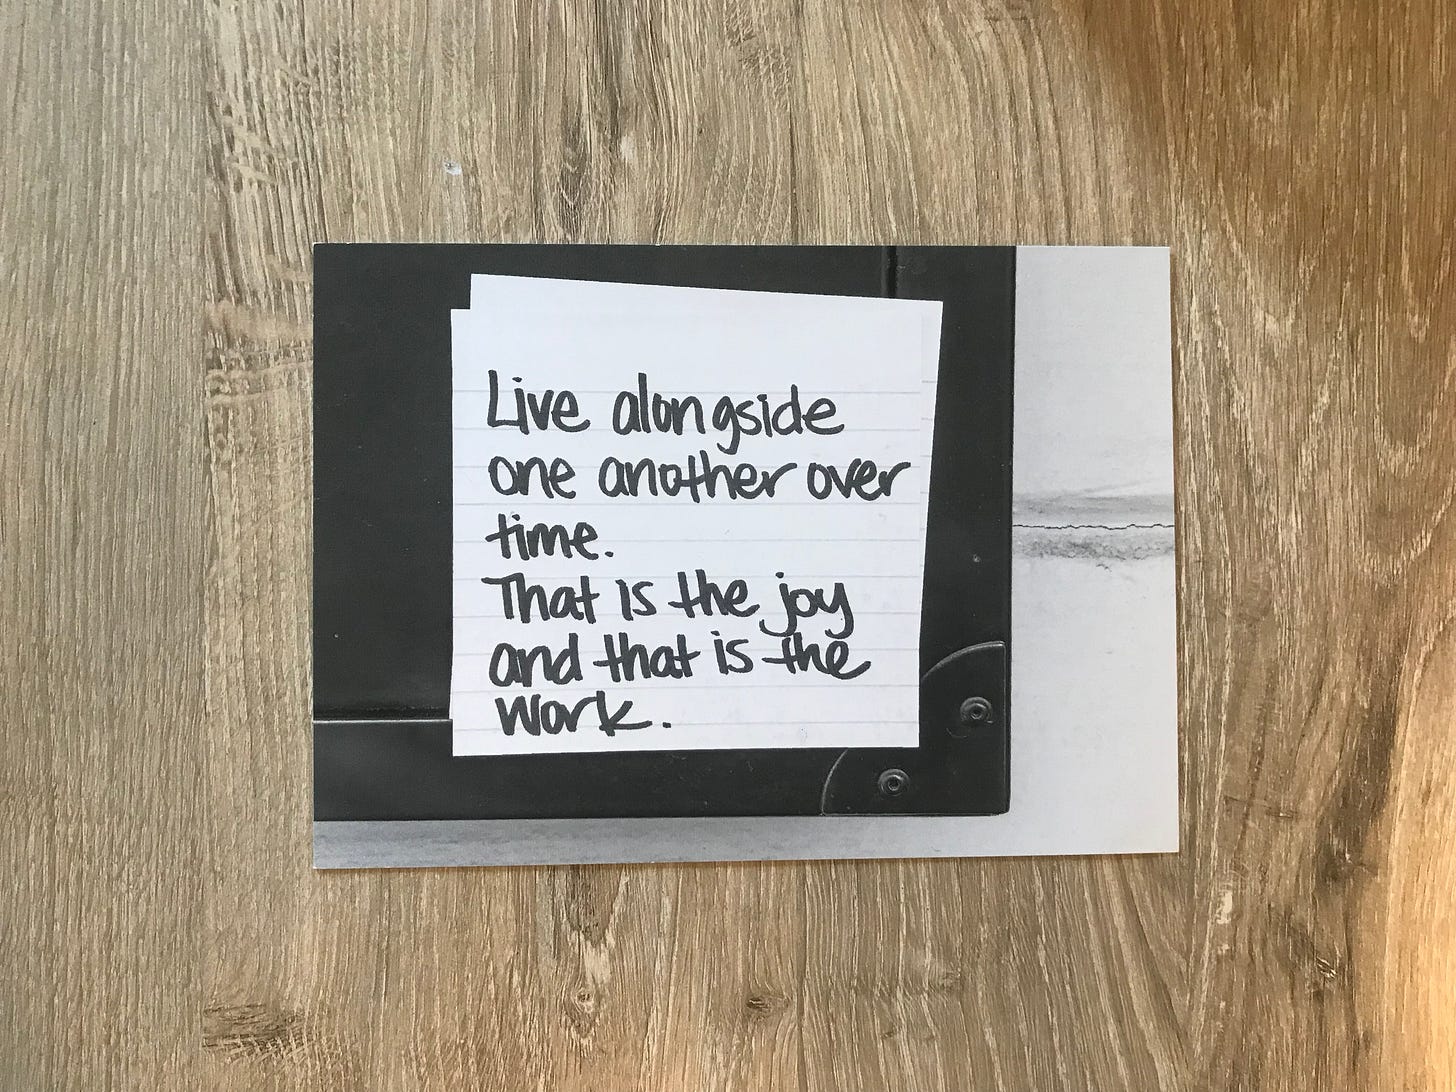 Live alongside
one another over
time.
That is the joy
and that is the
work.